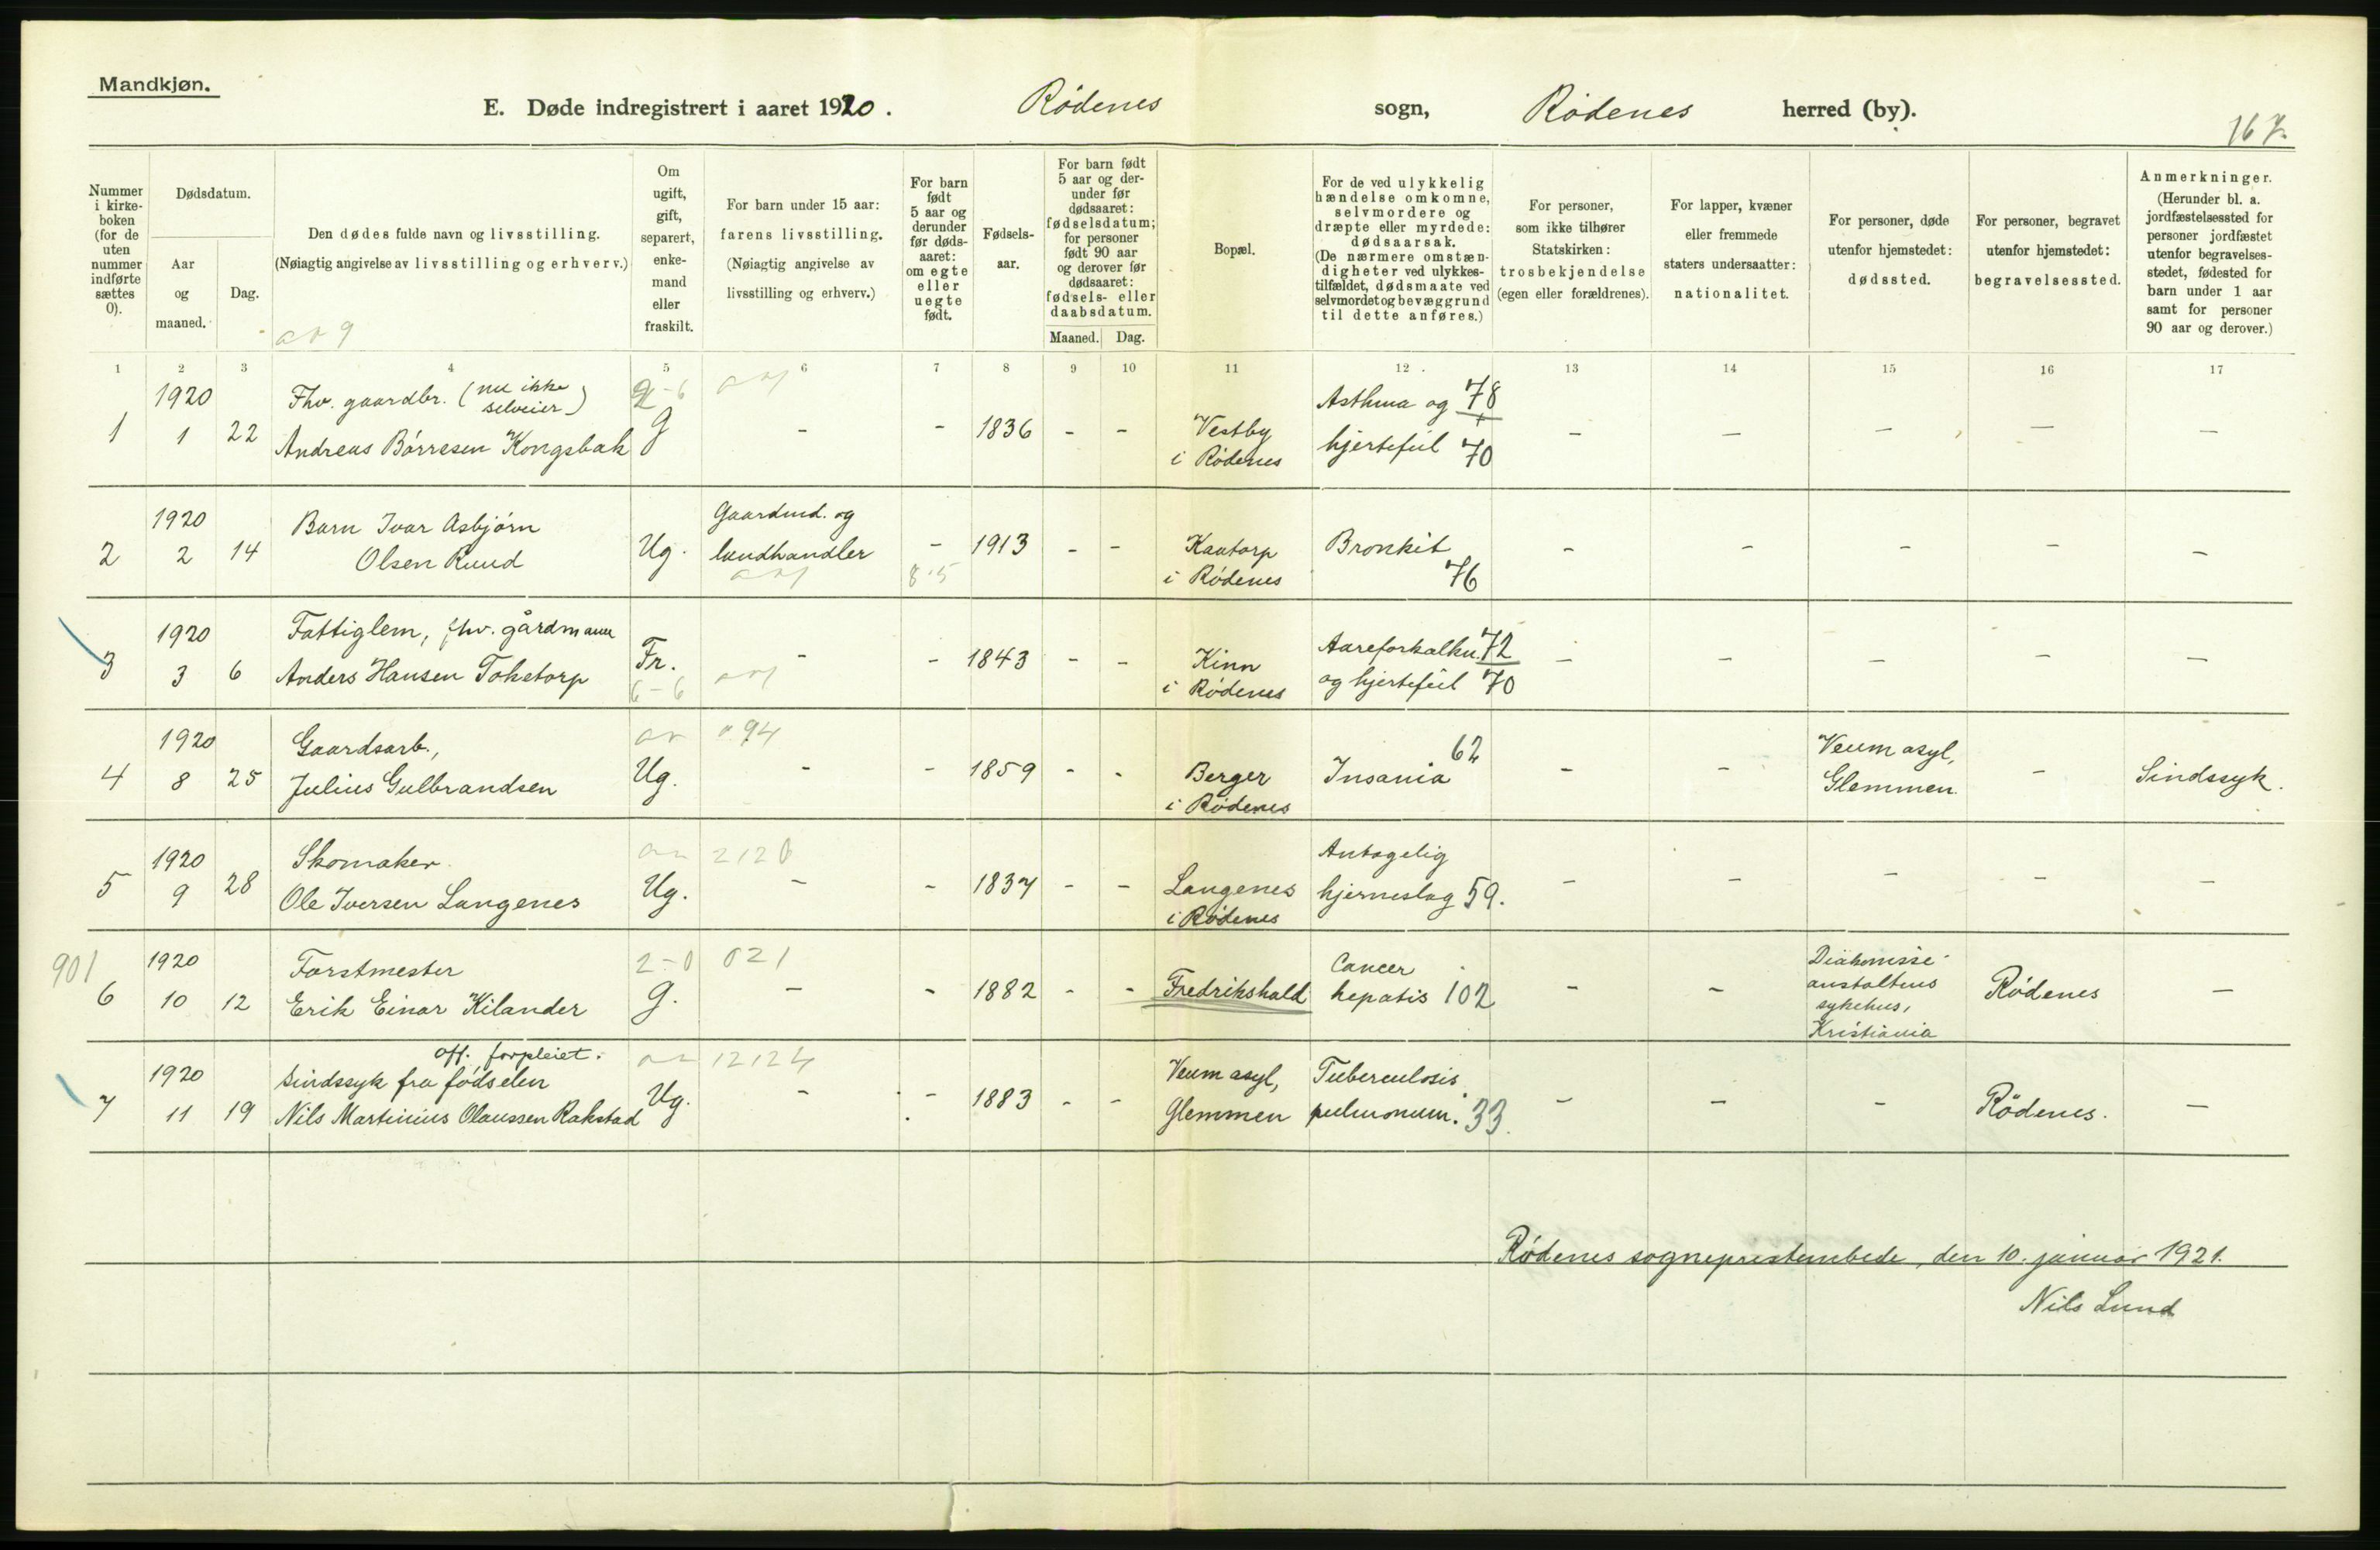 Mandkjøn.
E. Døde indregistrert i aaret 1920.
Rødenes sogn, Rødenes herred (by).
167.
Nummer i kirke-boken (for de uten nummer indførte sættes 0).
Dødsdatum.
Aar og maaned.
Dag.
Den dødes fulde navn og livsstilling.
(Nøiagtig angivelse av livsstilling og erhverv.)
Om ugift, gift, separert, enke-mand eller fraskilt.
For barn under 15 aar: farens livsstilling.
(Nøiagtig angivelse av livsstilling og erhverv.)
For barn født 5 aar og derunder før døds-aaret: om egte eller uegte født.
Fødsels-aar.
For barn født 5 aar og der-under før dødsaaret: fødselsdatum; for personer født 90 aar og derover før dødsaaret: fødsels- eller daabsdatum.
Maaned. Dag.
Bopæl.
For de ved ulykkelig hændelse omkomne, selvmordere og dræpte eller myrdede: dødsaarsak.
(De nærmere omstæn-digheter ved ulykkes-tilfældet, dødsmaate ved selvmordet og bevæggrund til dette anføres.)
For personer, som ikke tilhører Statskirken: trosbekjendelse (egen eller forældrenes).
For lapper, kvæner eller fremmede staters undersaatter: nationalitet.
For personer, døde utenfor hjemstedet: dødssted.
For personer, begravet utenfor hjemstedet: begravelsessted.
Anmerkninger.
(Herunder bl. a. jordfæstelsessted for personer jordfæstet utenfor begravelses-stedet, fødested for barn under 1 aar samt for personer 90 aar og derover.)
1 2 3 4 5 6 7 8 9 10 11 12 13 14 15 16 17
1920 Fhv. gaardbr. (nu ikke selveier) Asthma og 78
1 1 22 Andreas Børresen Kongsbak g - - 1836 - - Vestby i Rødenes hjertefeil 70 - - - - -
1920 Barn Ivar Asbjørn Gaardmd. og
2 2 14 Olsen Ruud Ug. landhandler - 1913 - - Kautorp i Rødenes Bronkit 76 - - - - -
8.5
1920 Fattiglem, fhv. gårdmann Aareforkalkn. 72
3 3 6 Anders Hansen Toketorp Fr. - - 1843 - - Kinn i Rødenes og hjertefeil 70 - - - - -
6-6
1920 Gaardsarb., 62 Veum asyl,
4 8 25 Julius Gulbrandsen Ug. - - 1859 - - Berger i Rødenes Insania - - Glemmen. - Sindssyk.
1920 Skomaker Antagelig
5 9 28 Ole Iversen Langenes Ug. - - 1837 - - Langenes i Rødenes hjerneslag 59. - - - - -
901
1920 Forstmester 2-0 021 Cancer Diakonisse-
6 10 12 Erik Einar Kilander g. - - 1882 - - Fredrikshald hepatis 102 - - anstaltens sykehus, Kristiania Rødenes -
1920 off. forpleiet. sindssyk fra fødselen 12124 Veum asyl, Tuberculosis
7 11 19 Nils Martinius Olaussen Rakstad Ug. - - 1883 - - Glemmen pulmonum. 33. - - - Rödenes. -
Rødenes sogneprestembede, den 10. januar 1921.
Nils Lund